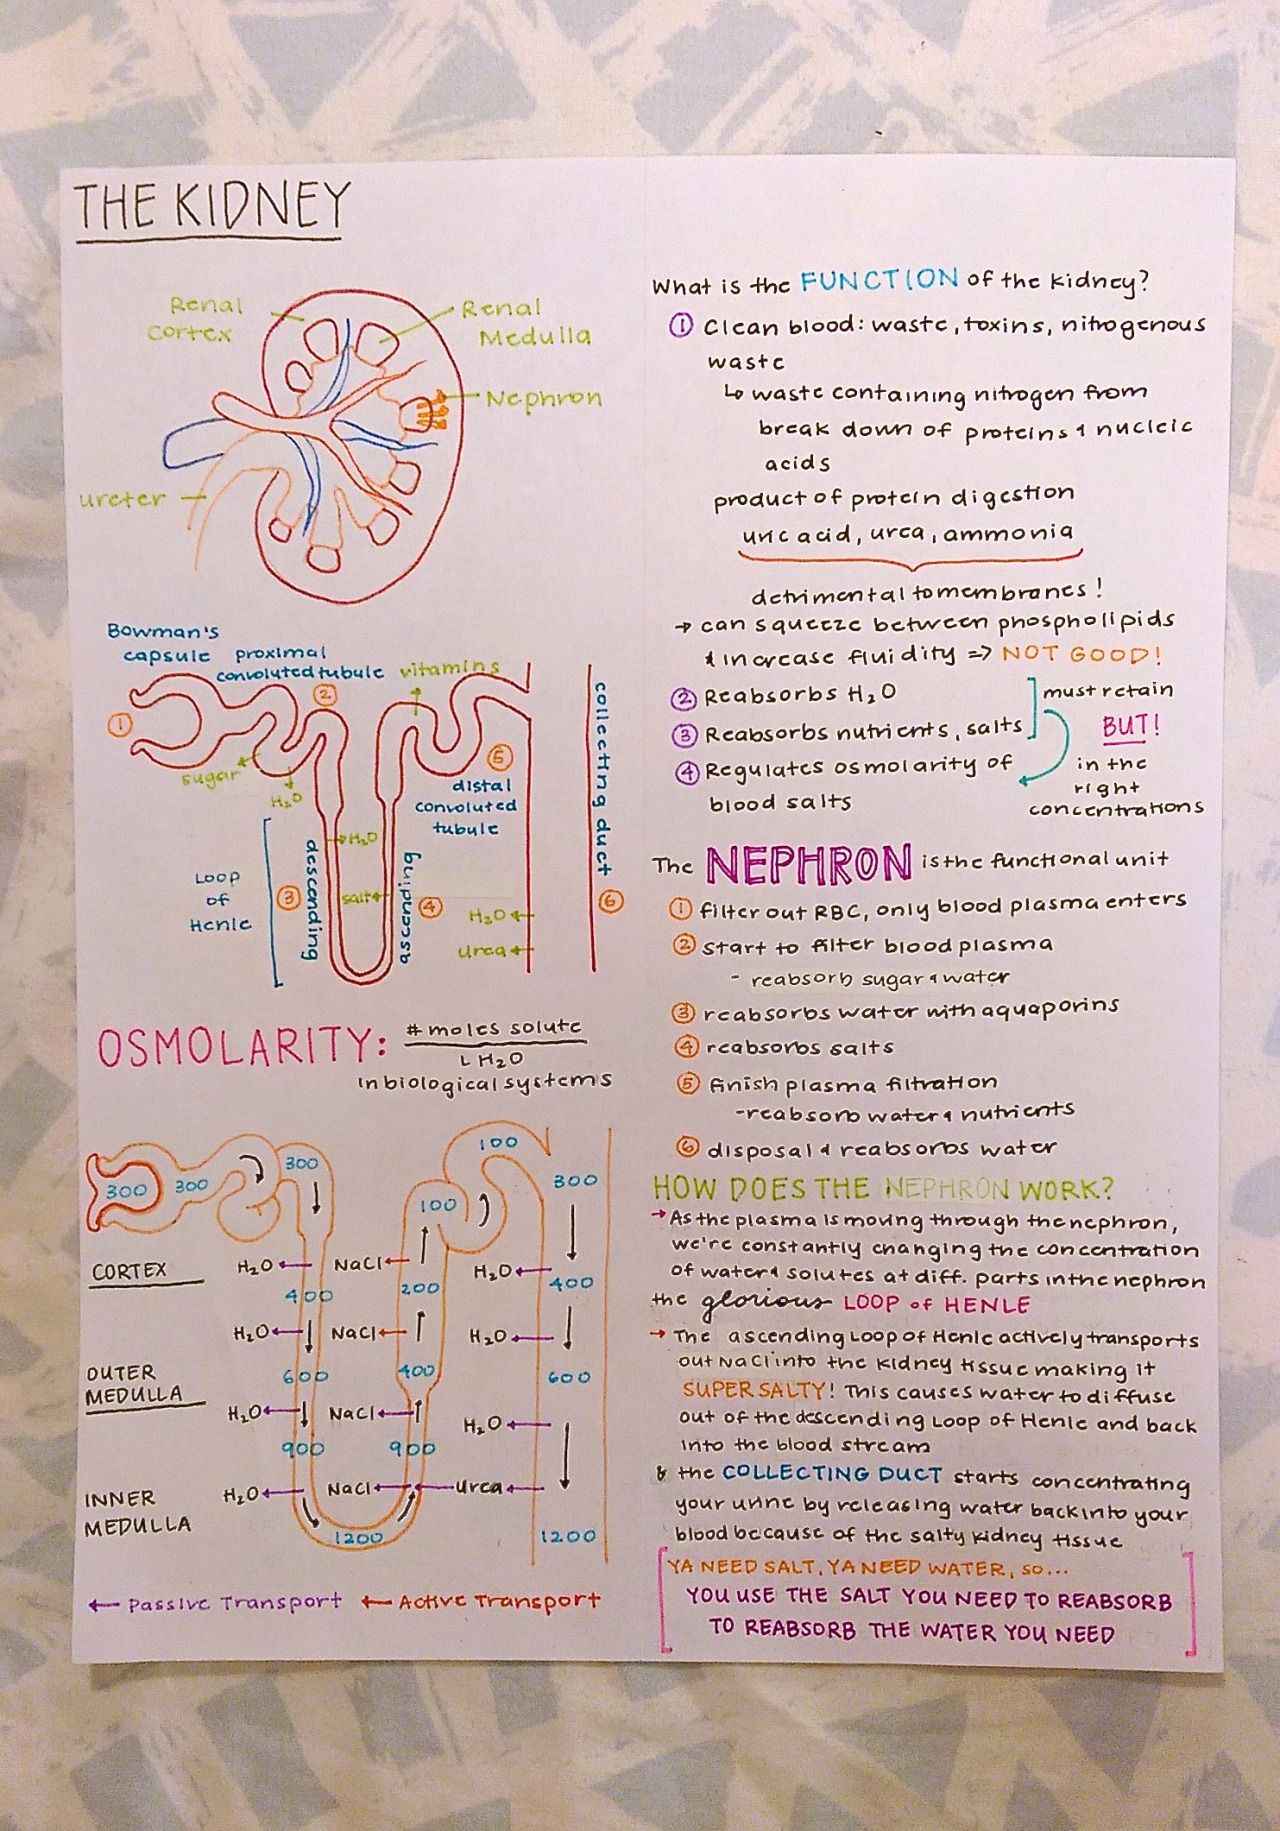 THE KIDNEY
Renal
Cortex
Renal
Medulla
Nephron
ureter
Bowman's
capsule
proximal
convoluted tubule
vitamins
1
2
sugar
H₂O
5
distal
convoluted
tubule
collecting duct
6
Loop
of
Henle
3
descending
H₂O
salt
ascending
4
H₂O
urea
OSMOLARITY: # moles solute
L H₂O
in biological systems
300
300
300
100
100
300
CORTEX
H₂O
NaCl
H₂O
400
200
400
H₂O
NaCl
H₂O
OUTER
MEDULLA
600
400
600
H₂O
NaCl
H₂O
900
900
INNER
MEDULLA
H₂O
NaCl
Urea
1200
1200
← Passive Transport ← Active Transport
What is the FUNCTION of the kidney?
① Clean blood: waste, toxins, nitrogenous
waste
↳ waste containing nitrogen from
break down of proteins & nucleic
acids
product of protein digestion
uric acid, urea, ammonia
detrimental to membranes!
→ can squeeze between phospholipids
& increase fluidity => NOT GOOD!
② Reabsorbs H₂O
③ Reabsorbs nutrients, salts
④ Regulates osmolarity of
blood salts
must retain
BUT!
in the
right
concentrations
The NEPHRON is the functional unit
① filter out RBC, only blood plasma enters
② start to filter blood plasma
- reabsorb sugar & water
③ reabsorbs water with aquaporins
④ reabsorbs salts
⑤ finish plasma filtration
-reabsorb water & nutrients
⑥ disposal & reabsorbs water
HOW DOES THE NEPHRON WORK?
→ As the plasma is moving through the nephron,
we're constantly changing the concentration
of water & solutes at diff. parts in the nephron
the glorious LOOP of HENLE
→ The ascending Loop of Henle actively transports
out NaCl into the kidney tissue making it
SUPER SALTY! This causes water to diffuse
out of the descending Loop of Henle and back
into the blood stream
& the COLLECTING DUCT starts concentrating
your urine by releasing water back into your
blood because of the salty kidney tissue
YA NEED SALT, YA NEED WATER, SO...
YOU USE THE SALT YOU NEED TO REABSORB
TO REABSORB THE WATER YOU NEED